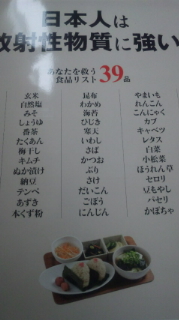 日本人は
放射性物質に強い
あなたを救う
食品リスト39品
玄米
自然塩
みそ
しょうゆ
番茶
たくあん
梅干し
キムチ
ぬか漬け
納豆
テンペ
あずき
本くず粉
昆布
わかめ
海苔
ひじき
寒天
いわし
さば
かつお
ぶり
さけ
だいこん
ごぼう
にんじん
やまいも
れんこん
こんにゃく
カブ
キャベツ
レタス
白菜
小松菜
ほうれん草
セロリ
豆もやし
パセリ
かぼちゃ